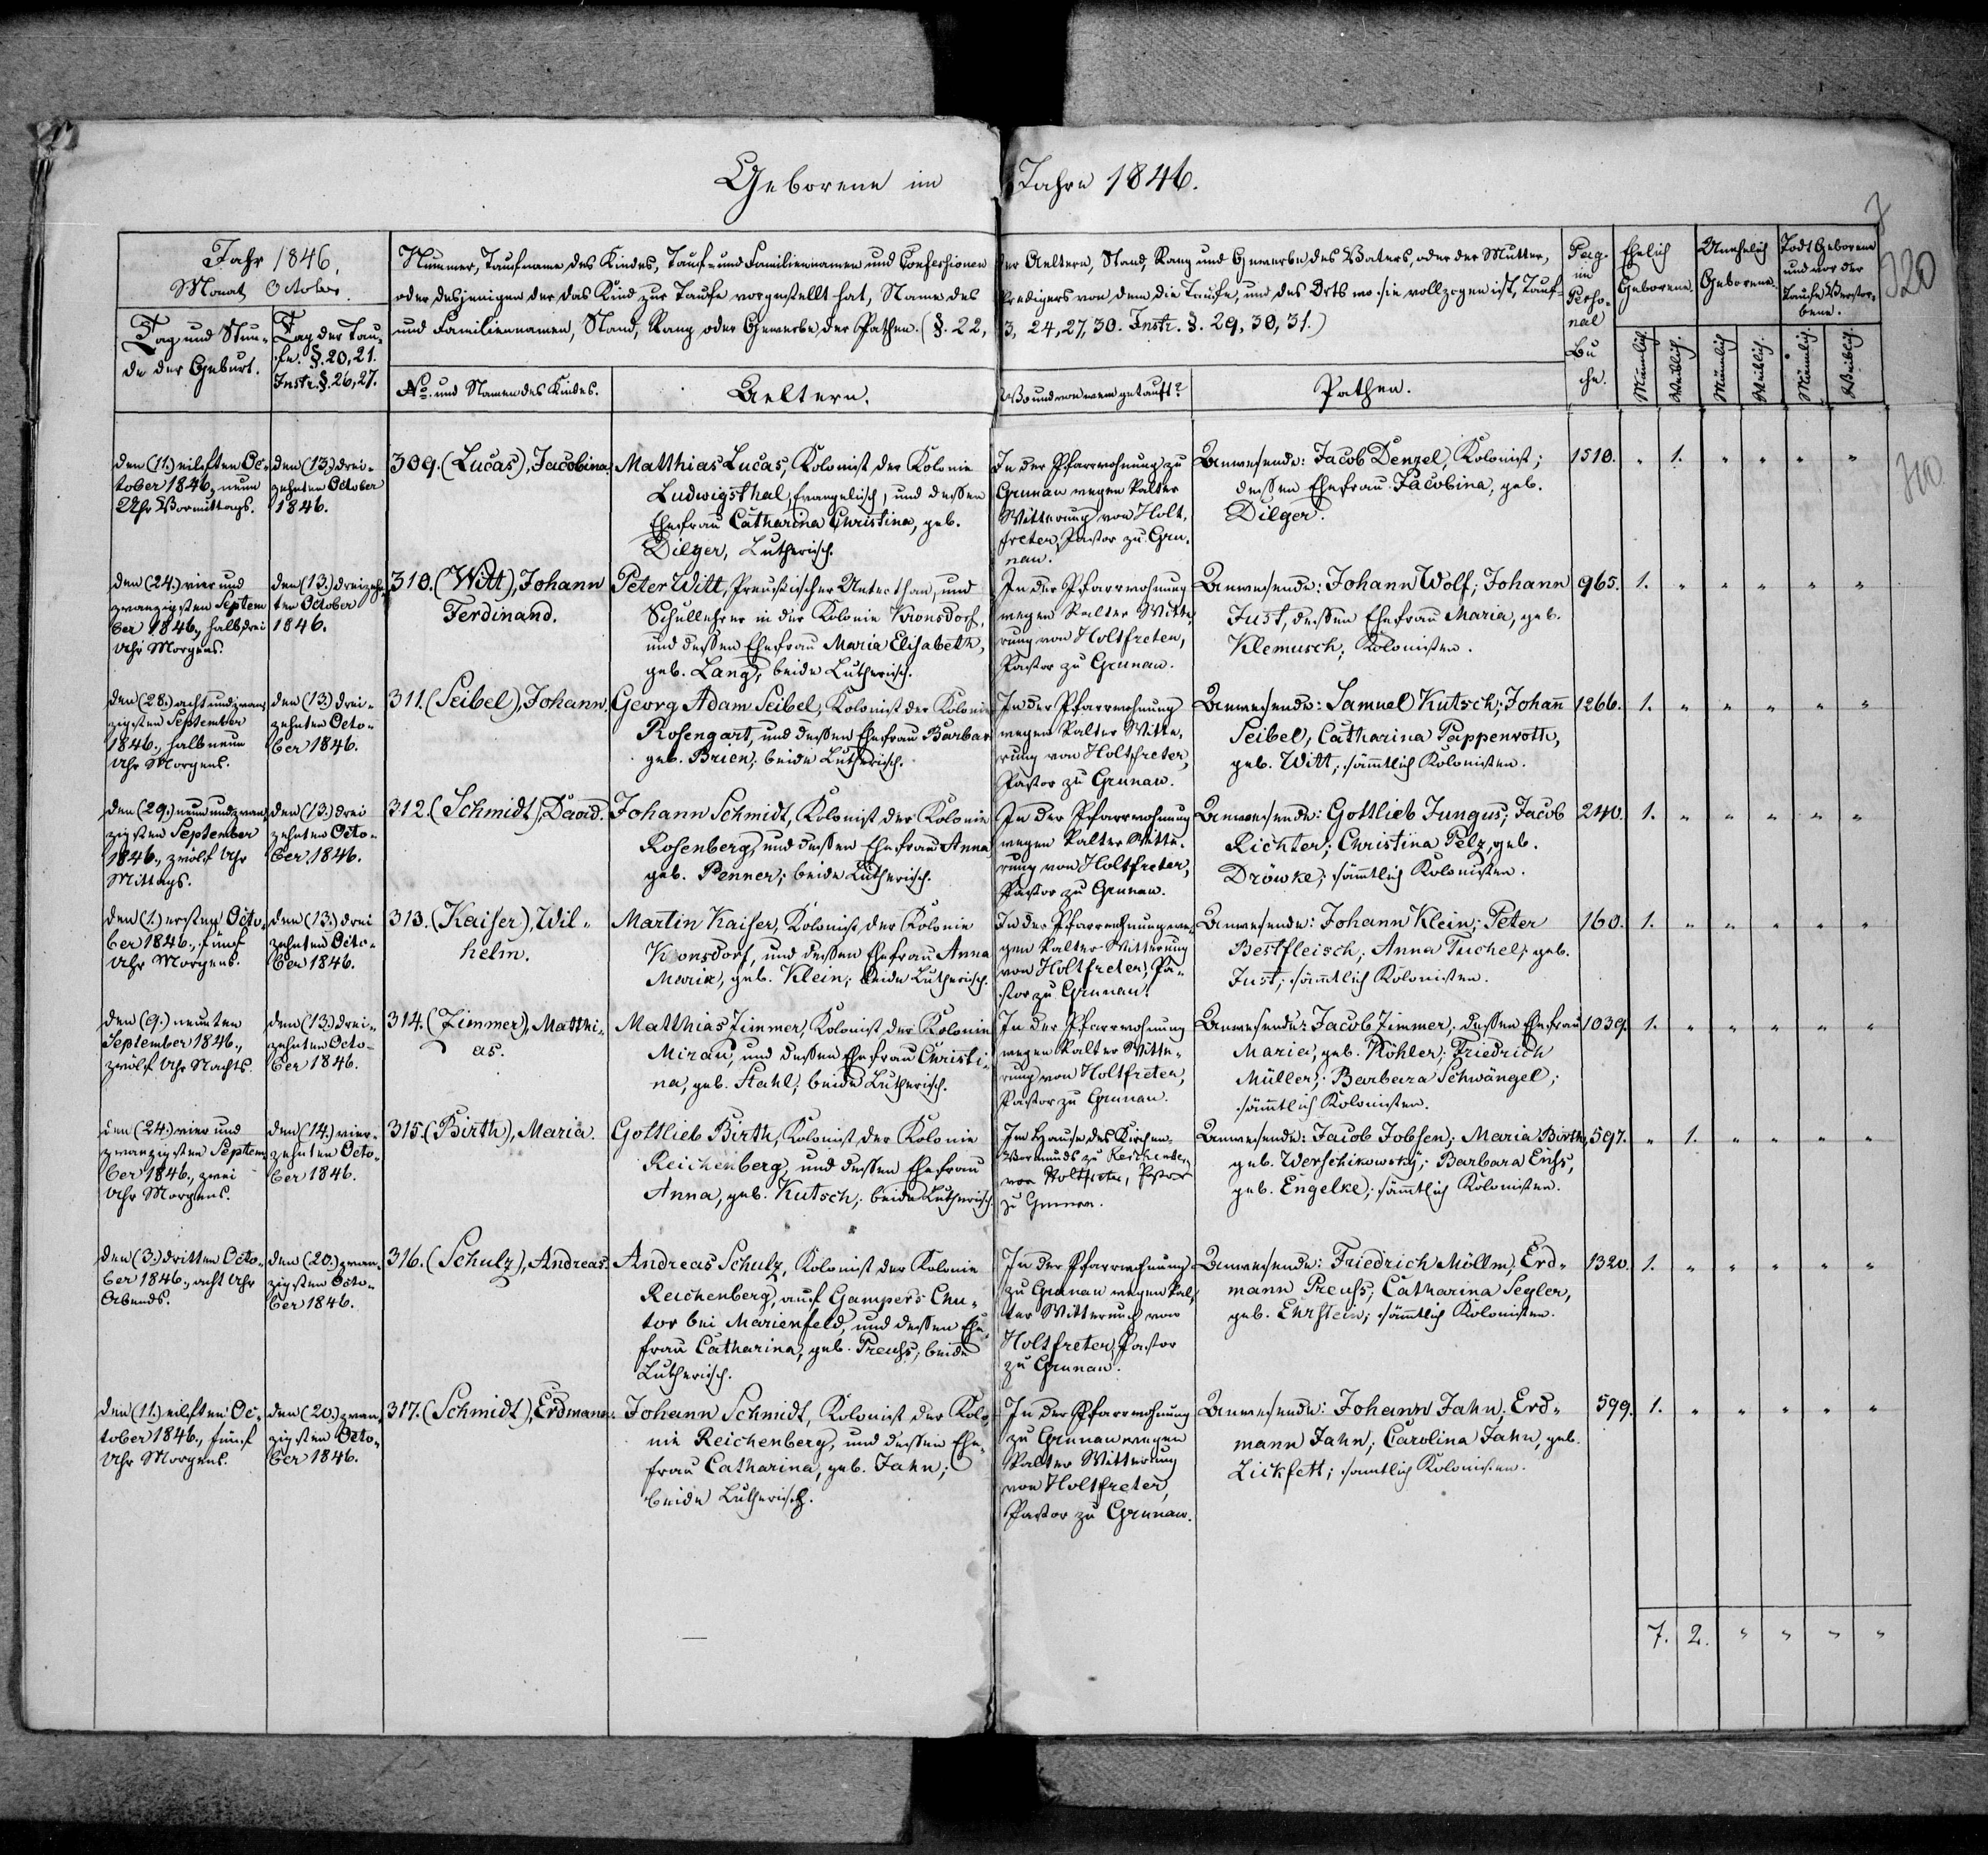 Geborene im Jahre 1846.
Jahr 1846.
Monat October.
Tag und Stun-
de der Geburt.
Tag der Tau-
fe. §. 20, 21.
Instr. §. 26, 27.
Nummer, Taufname des Kindes, Tauf- und Familiennamen und Confessionen der Aeltern, Stand, Rang und Gewerbe des Vaters, oder der Mutter,
oder desjenigen der das Kind zur Taufe vorgestellt hat, Name des Predigers von dem die Taufe, und des Orts wo sie vollzogen ist, Tauf-
und Familiennamen, Stand, Rang oder Gewerbe der Pathen. (§. 22, 3, 24, 27, 30. Instr. §. 29, 30, 31.)
No. und Namen des Kindes.
Aeltern.
Wo und von wem getauft?
Pathen.
Pag.
im
Perso-
nal
Bu
che.
Ehelich
Geborene.
Unehelich
Geborene.
Todt Geborene
und vor der
Taufe Verstor-
bene.
Männlich.
Weiblich.
Männlich
Weiblich.
Männlich.
Weiblich.
320
den (11.) eilften Oc-
tober 1846, neun
Uhr Vormittags.
den (13.) drei-
zehnten October
1846.
309. (Lucas), Jacobina
Matthias Lucas, Kolonist der Kolonie
Ludwigsthal, Evangelisch, und dessen
Ehefrau Catharina Christina, geb.
Dilger, Lutherisch.
In der Pfarrwohnung zu
Grunau wegen kalter
Witterung von Holt-
freter, Pastor zu Gru-
nau.
Anwesende: Jacob Denzel, Kolonist;
dessen Ehefrau Jacobina, geb.
Dilger.
1510. " 1. " " " "
den (24.) vier und
zwanzigsten Septem
ber 1846, halb drei
Uhr Morgens.
den (13.) dreizehn-
ten October
1846.
310. (Witt), Johann
Ferdinand.
Peter Witt, Preußischer Unterthan, und
Schullehrer in der Kolonie Kronsdorf,
und dessen Ehefrau Maria Elisabeth,
geb. Lang, beide Lutherisch.
In der Pfarrwohnung
wegen kalter Witte-
rung von Holtfreter,
Pastor zu Grunau.
Anwesende: Johann Wolf; Johann
Just, dessen Ehefrau Maria, geb.
Klemusch; Kolonisten.
965. 1. " " " " "
den (28.) acht und zwan-
zigsten September
1846., halb neun
Uhr Morgens.
den (13.) drei-
zehnten Octo-
ber 1846.
311. (Seibel), Johann.
Georg Adam Seibel, Kolonist der Kolonie
Rosengart, und dessen Ehefrau Barbar
geb. Brien; beide Lutherisch.
In der Pfarrwohnung
wegen kalter Witte-
rung von Holtfreter,
Pastor zu Grunau.
Anwesende: Samuel Kutsch; Johan̄
Seibel, Catharina Pappenroth,
geb. Witt; säm̄tlich Kolonisten.
1266. 1. " " " " "
den (29.) neun und zwan-
zigsten September
1846., zwölf Uhr
Mittags.
den (13.) drei
zehnten Octo-
ber 1846.
312. (Schmidt), David.
Johann Schmidt, Kolonist der Kolonie
Rosenberg, und dessen Ehefrau Anna
geb. Penner; beide Lutherisch.
In der Pfarrwohnung
wegen kalter Witte-
rung von Holtfreter,
Pastor zu Grunau.
Anwesende: Gottlieb Jungus; Jacob
Richter; Christina Pelz, geb.
Dröwke; säm̄tlich Kolonisten.
240. 1. " " " " "
den (1.) ersten Octo-
ber 1846., fünf
Uhr Morgens.
den (13.) drei
zehnten Octo-
ber 1846.
313. (Kaiser), Wil-
helm.
Martin Kaiser, Kolonist der Kolonie
Kronsdorf, und dessen Ehefrau Anna
Maria, geb. Klein; beide Lutherisch.
In der Pfarrwohnung we-
gen kalter Witterung
von Holtfreter, Pa-
stor zu Grunau.
Anwesende: Johann Klein; Peter
Bestfleisch, Anna Tuchel, geb.
Just; säm̄tlich Kolonisten.
160. 1. " " " " "
den (9.) neunten
September 1846.,
zwölf Uhr Nachts.
den (13.) drei-
zehnten Octo-
ber 1846.
314. (Zimmer), Matthi-
as.
Matthias Zimmer, Kolonist der Kolonie
Mirau, und dessen Ehefrau Christi-
na, geb. Stahl, beide Lutherisch.
In der Pfarrwohnung
wegen kalter Witte-
rung von Holtfreter,
Pastor zu Grunau.
Anwesende: Jacob Zimmer, dessen Ehefrau
Maria, geb. Köhler; Friedrich
Müller; Barbara Schwängel;
säm̄tlich Kolonisten.
1039. 1. " " " " "
den (24.) vier und
zwanzigsten Septem
ber 1846., zwei
Uhr Morgens.
den (14.) vier-
zehnten Octo-
ber 1846.
315. (Birth), Maria.
Gottlieb Birth, Kolonist der Kolonie
Reichenberg, und dessen Ehefrau
Anna, geb. Kutsch; beide Lutherisch.
Im Hause des Kirchen-
Vormunds zu Reichenberg
von Holtfreter, Pastor
zu Grunau.
Anwesende: Jacob Jobsen; Maria Birth,
geb. Werschikowsky; Barbara Enss,
geb. Engelke; säm̄tlich Kolonisten.
597. " 1. " " " "
den (3.) dritten Octo-
ber 1846., acht Uhr
Abends.
den (20.) zwan-
zigsten Octo-
ber 1846.
316. (Schulz), Andreas.
Andreas Schulz, Kolonist der Kolonie
Reichenberg, auf Gampers Chu-
tor bei Marienfeld, und dessen Ehe-
frau Catharina, geb. Preuss; beide
Lutherisch.
In der Pfarrwohnung
zu Grunau wegen kal-
ter Witterung von
Holtfreter, Pastor
zu Grunau.
Anwesende: Friedrich Möllm, Erd-
mann Preuss; Catharina Segler,
geb. Ehrstein; säm̄tlich Kolonisten.
1320. 1. " " " " "
den (11.) eilften Oc-
tober 1846., fünf
Uhr Morgens.
den (20.) zwan-
zigsten Octo-
ber 1846.
317. (Schmidt), Erdmann.
Johann Schmidt, Kolonist der Kolo-
nie Reichenberg, und dessen Ehe-
frau Catharina, geb. Jahn;
beide Lutherisch.
In der Pfarrwohnung
zu Grunau wegen
kalter Witterung
von Holtfreter,
Pastor zu Grunau.
Anwesende: Johann Jahn, Erd-
mann Jahn; Carolina Jahn, geb.
Lickfett; sämtlich Kolonisten.
599. 1. " " " " "
7. 2. " " " "